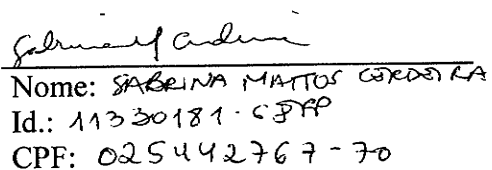 Nome: SABRINA MATTOS CORDEIRA
Id.: 11330181
CPF: 025442767-70